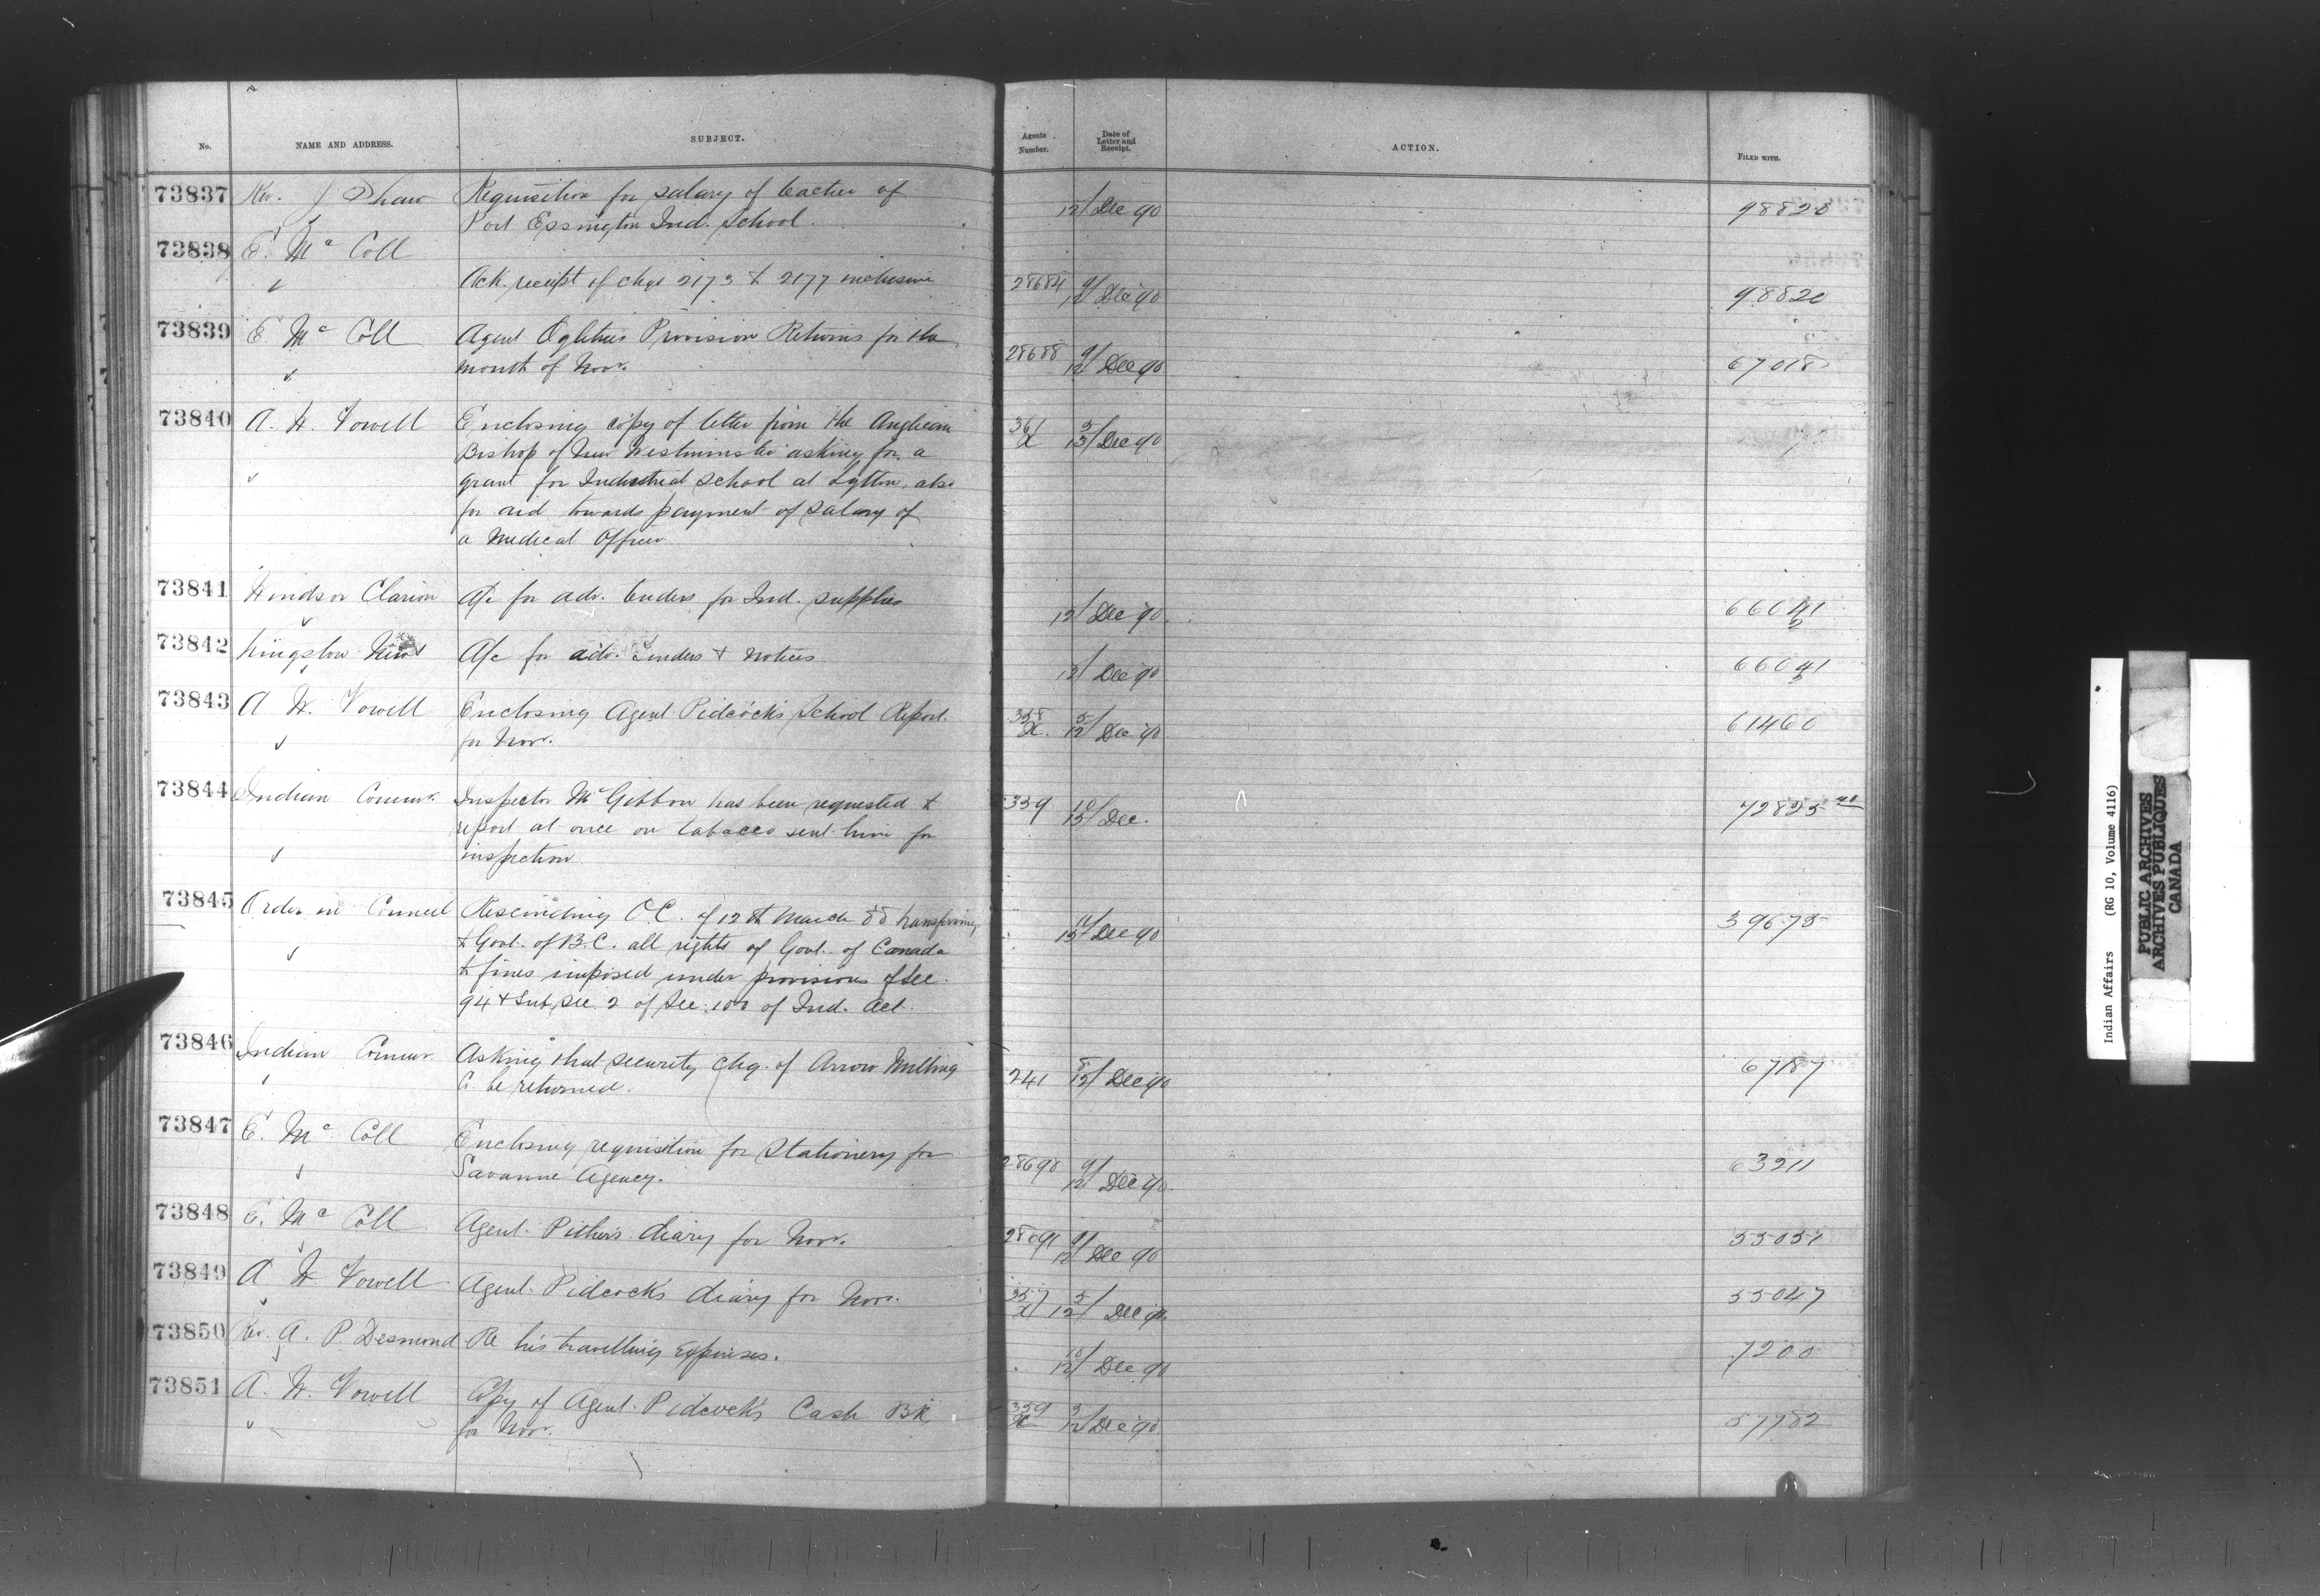 No. NAME AND ADDRESS. SUBJECT. Agents Number. Date of Letter and Receipt. ACTION. FILED WITH.
73837 Rev. J Shaw Requisition for salary of teacher of
Port Essington Ind. School. 12/ Dec 90 98828
73838 E. Mc Coll
Ack. receipt of chqs 2173 to 2177 inclusive 28684 9/12/ Dec 90 98820
73839 E Mc Coll Agent Ogletree's Provision Returns for the
month of Novr. 28688 9/12 Dec 90 67018
73840 A. W. Vowell Enclosing copy of letter from the Anglican 361/X 5/13/ Dec 90
Bishop of New Westminster asking for a
grant for Industrial School at Lytton, also
for aid towards payment of salary of
a Medical Officer
73841 Windsor Clarion A/c for adv. tenders for Ind. supplies 12/ Dec 90 66041/2
73842 Kingston News A/c for adv. Tenders + Notices 12/ Dec 90 66041/2
73843 A W. Vowell Enclosing Agent Pidcock's School Report
for Novr. 358/X. 5/12/ Dec 90 61460
73844 Indian Commr. Inspector McGibbon has been requested to 359 10/13/ Dec. 72825
report at once on tobacco sent him for
inspection
73845 Order in Council Rescinding O.C. of 12th March 88 transferring 39675
to Govt. of B.C. all rights of Govt. of Canada Dec 90
to fines imposed under provisions of Sec.
94 + Sub Sec. 2 of Sec. 100 of Ind. Act.
73846 Indian Commr. Asking that security chq. of Arrow Milling
Co. be returned. 241 8/12/ Dec 90 67187
73847 E. Mc Coll Enclosing requisition for Stationery for
Savanne Agency. 28690 9/12/ Dec 90 63211
73848 E. Mc Coll Agent Pither's diary for Novr. 28691 9/12/ Dec 90 55051
73849 A. W. Vowell Agent Pidcock's diary for Novr. 357/X 5/12/ Dec 90. 55047
73850 Rev. A. P. Desmond Re his travelling expenses. 10/12/ Dec 90 7200
73851 A. W. Vowell Copy of Agent Pidcock's Cash BK 359/X 5/12/ Dec 90 57782
for Novr.
Indian Affairs (RG 10, Volume 4116)
PUBLIC ARCHIVES
ARCHIVES PUBLIQUES
CANADA